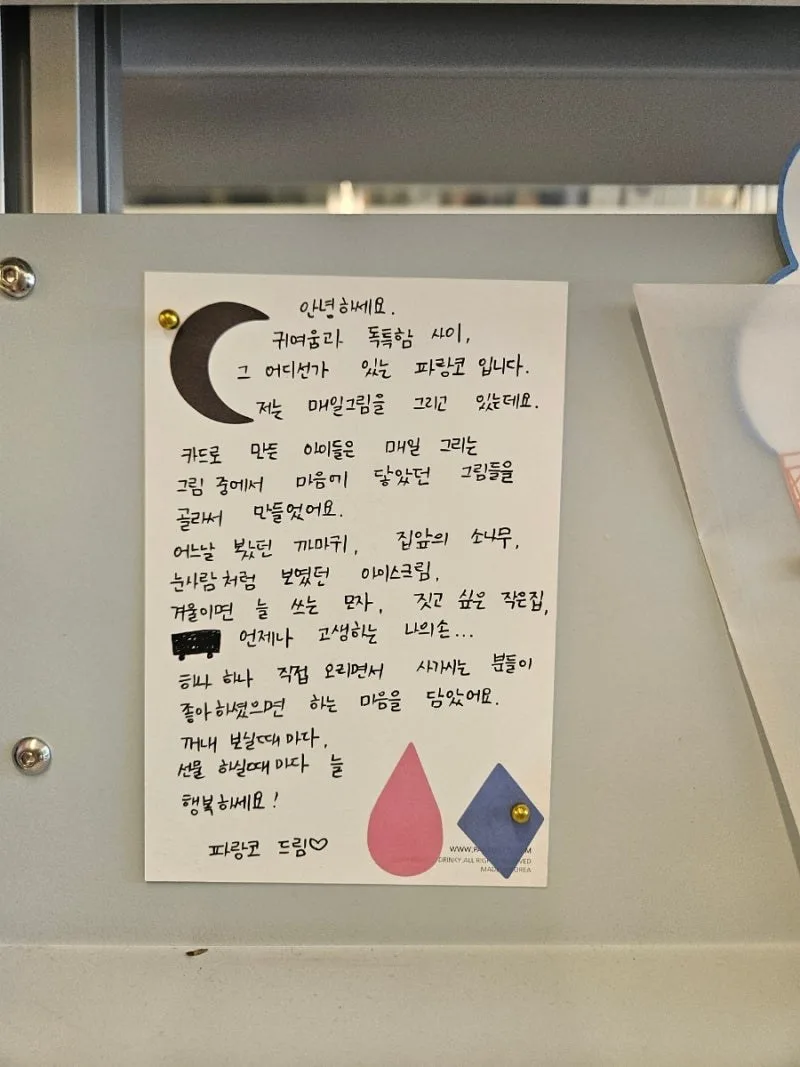 안녕하세요.
귀여움과 독특함 사이,
그 어디선가 있는 파랑코 입니다.
저는 매일그림을 그리고 있는데요.
카드로 만든 아이들은 매일 그리는
그림 중에서 마음에 닿았던 그림들을
골라서 만들었어요.
어느날 봤던 까마귀, 집앞의 소나무,
눈사람처럼 보였던 아이스크림,
겨울이면 늘 쓰는 모자, 짓고 싶은 작은집,
언제나 고생하는 나의손...
하나 하나 직접 오리면서 사가시는 분들이
좋아하셨으면 하는 마음을 담았어요.
꺼내 보실때마다,
선물 하실때마다 늘
행복하세요!
파랑코 드림♡
DRINKY.ALL